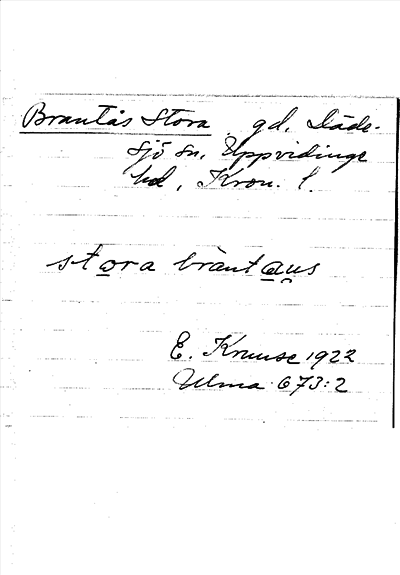 Brantås Stora gd, Däde-
sjö sn, Uppvidinge
hd, Kron. l.
stora bràntaus
E. Kruuse 1922
Ulma 673:2